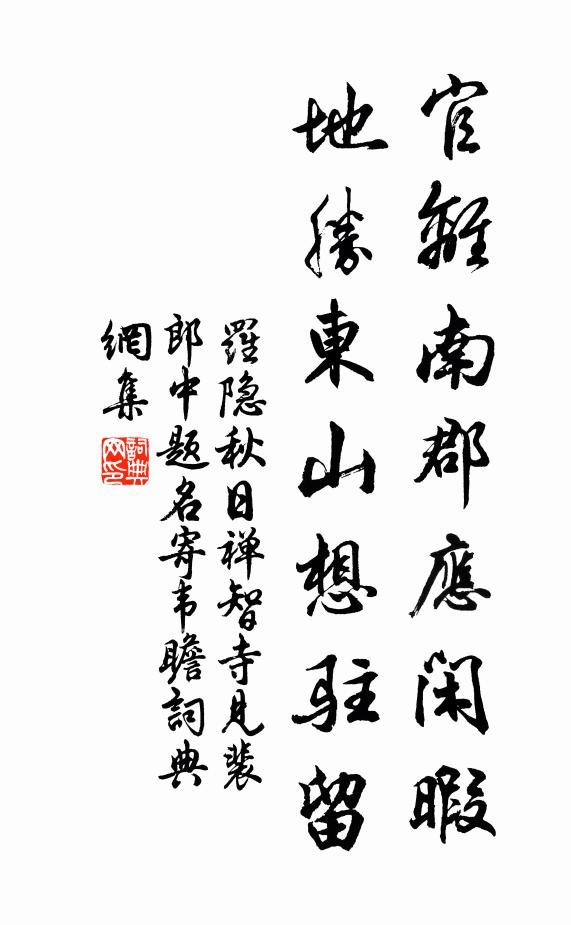 官離南郡應閑暇
地勝東山想駐留
羅隐秋日禅智寺見裴
郎中题名寄韦瞻詞典
網集
詞典网印